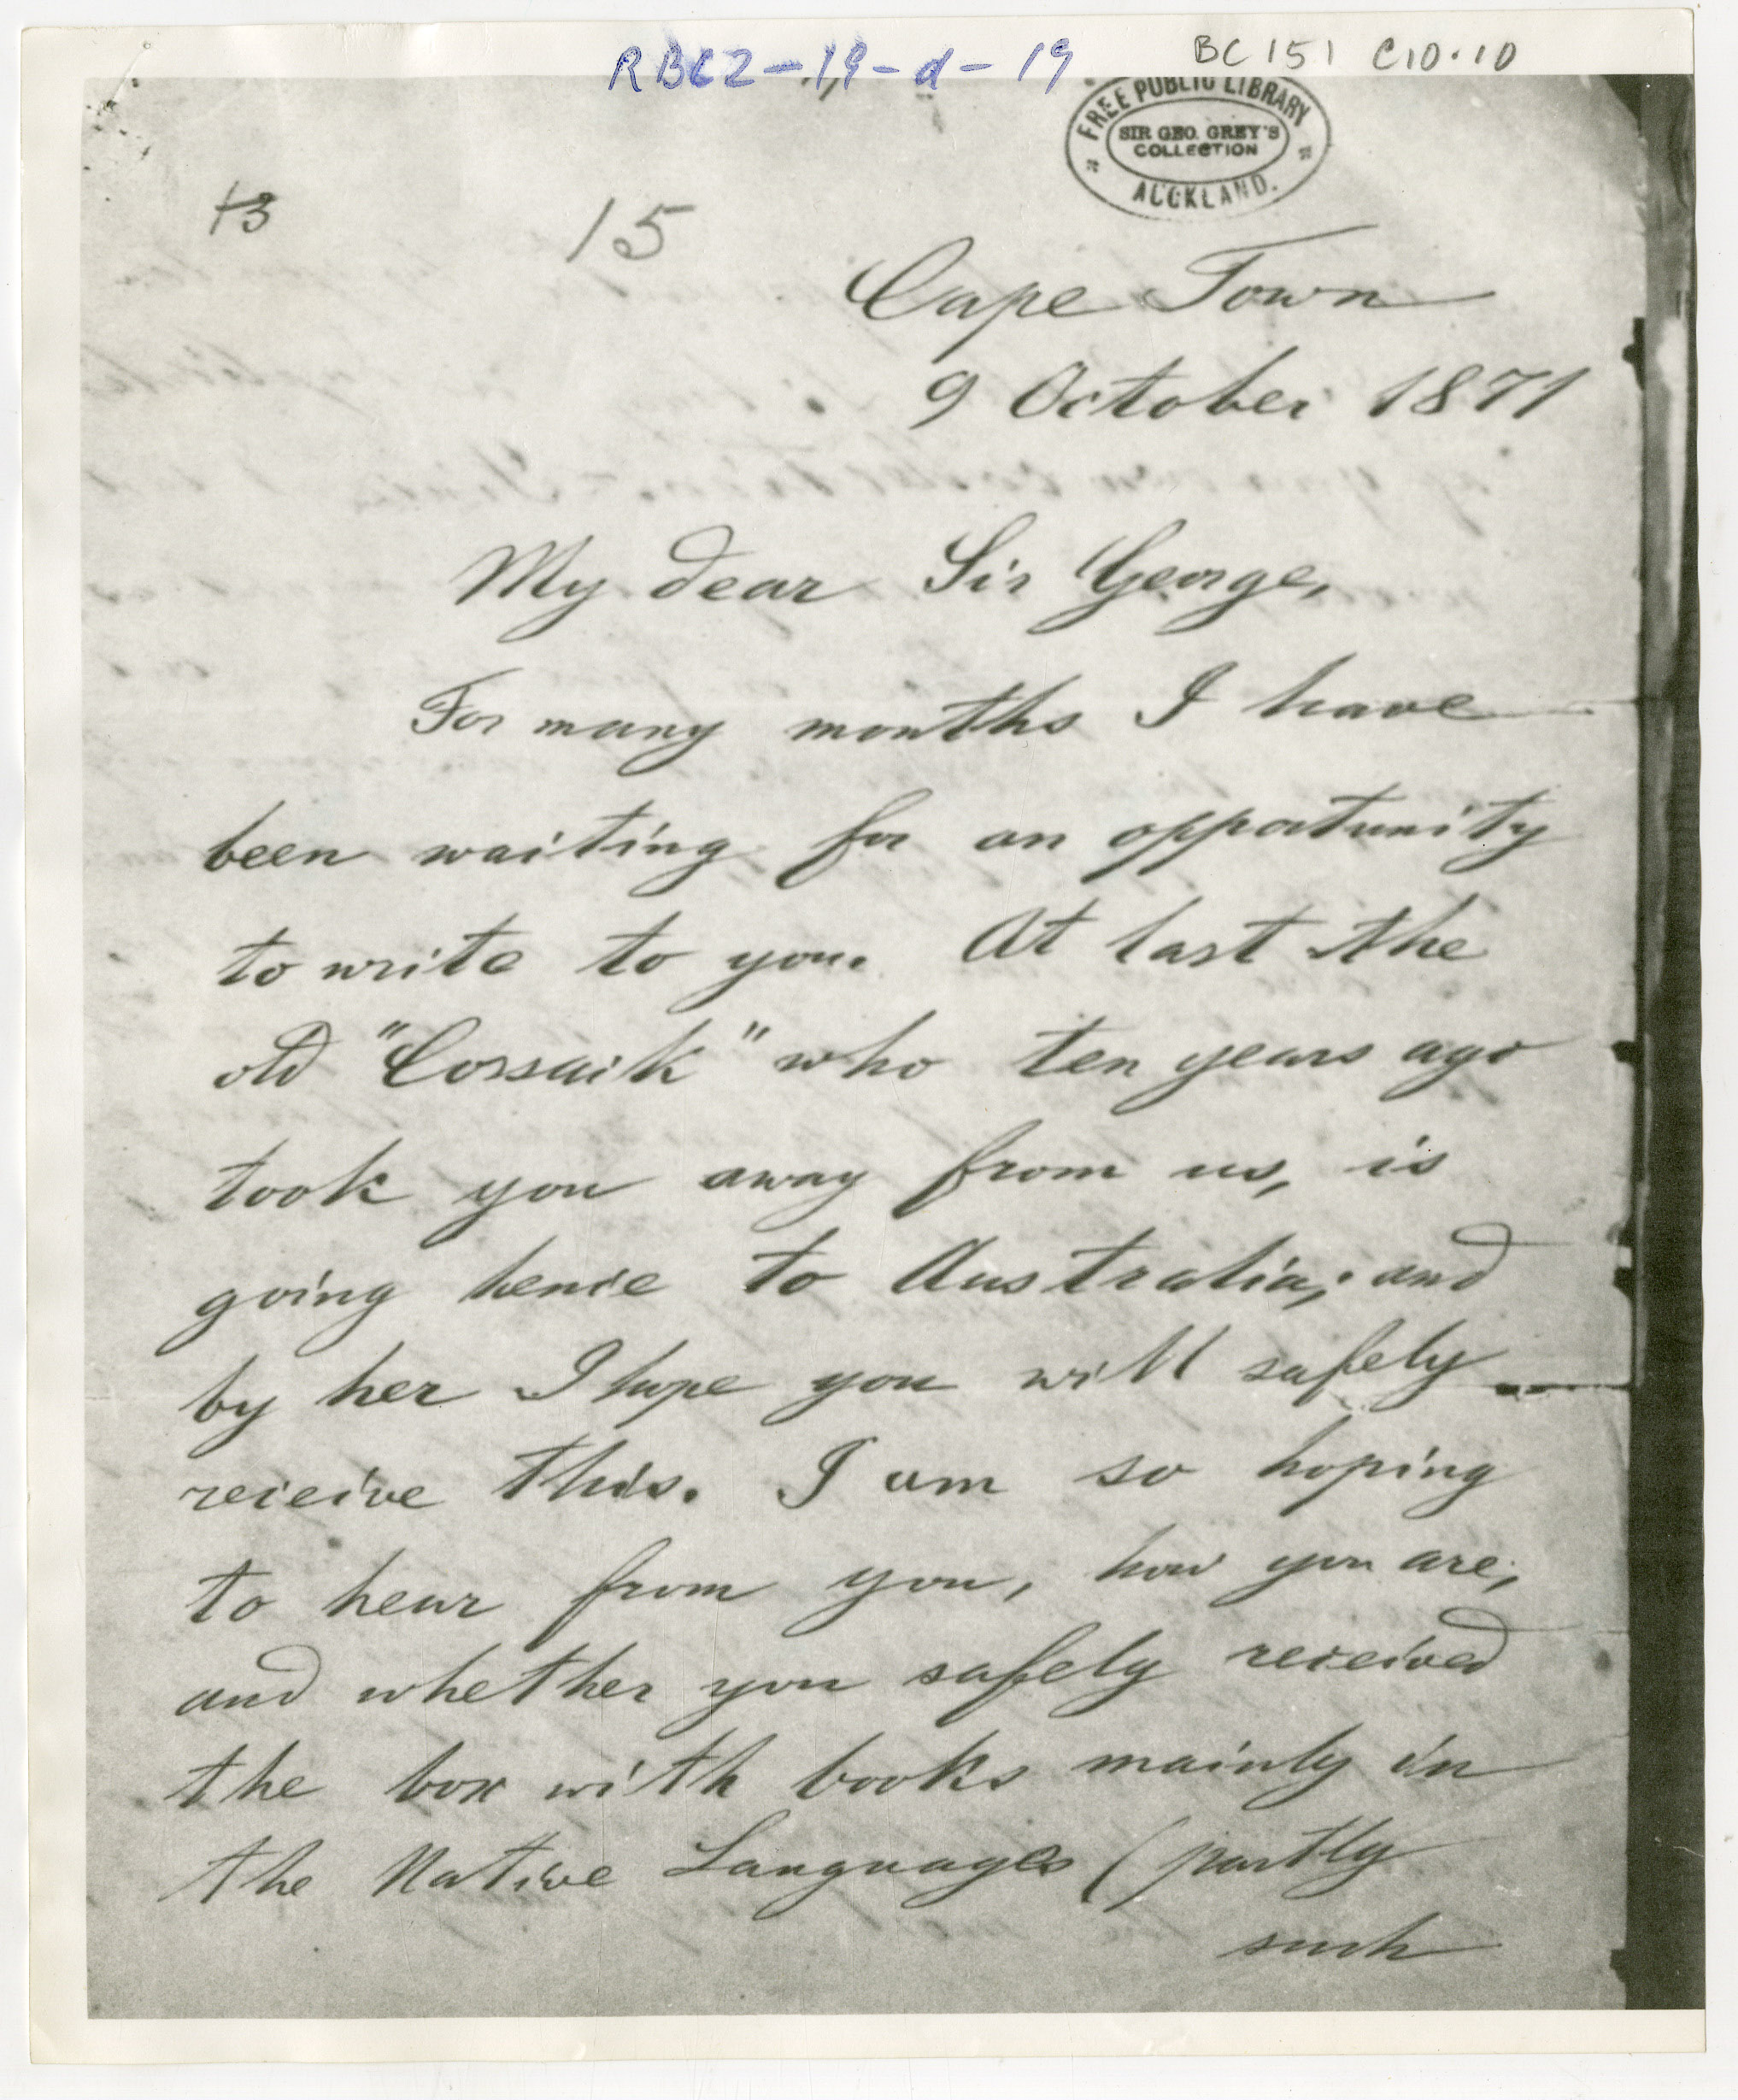 RBC2-19-d-19
BC 151 C10.10
FREE PUBLIC LIBRARY
SIR GEO. GREY'S
COLLECTION
AUCKLAND.
13
15
Cape Town
9 October 1871
My dear Sir George,
For many months I have
been waiting for an opportunity
to write to you. At last the
old "Cossaik" who ten years ago
took you away from us, is
going hence to Australia; and
by her I hope you will safely
receive this. I am so hoping
to hear from you, how you are,
and whether you safely received
the box with books mainly in
the Native Languages (partly
such